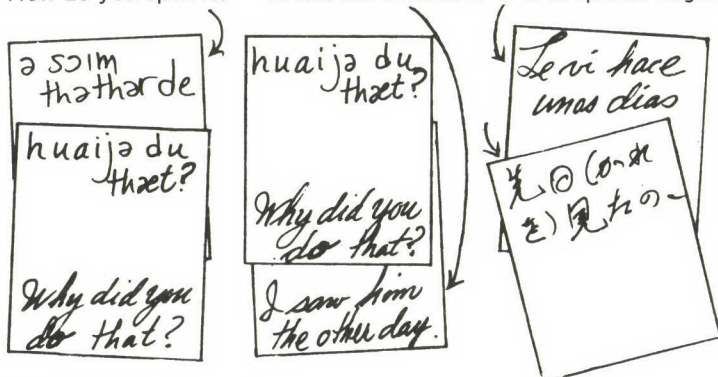 ə sɔim
thəthərde
huaijə du
thæt?
Why did you
do that?
huaijə du
thæt?
Why did you
do that?
I saw him
the other day.
Le vi hace
unos días
先日(かれ
を)見たの